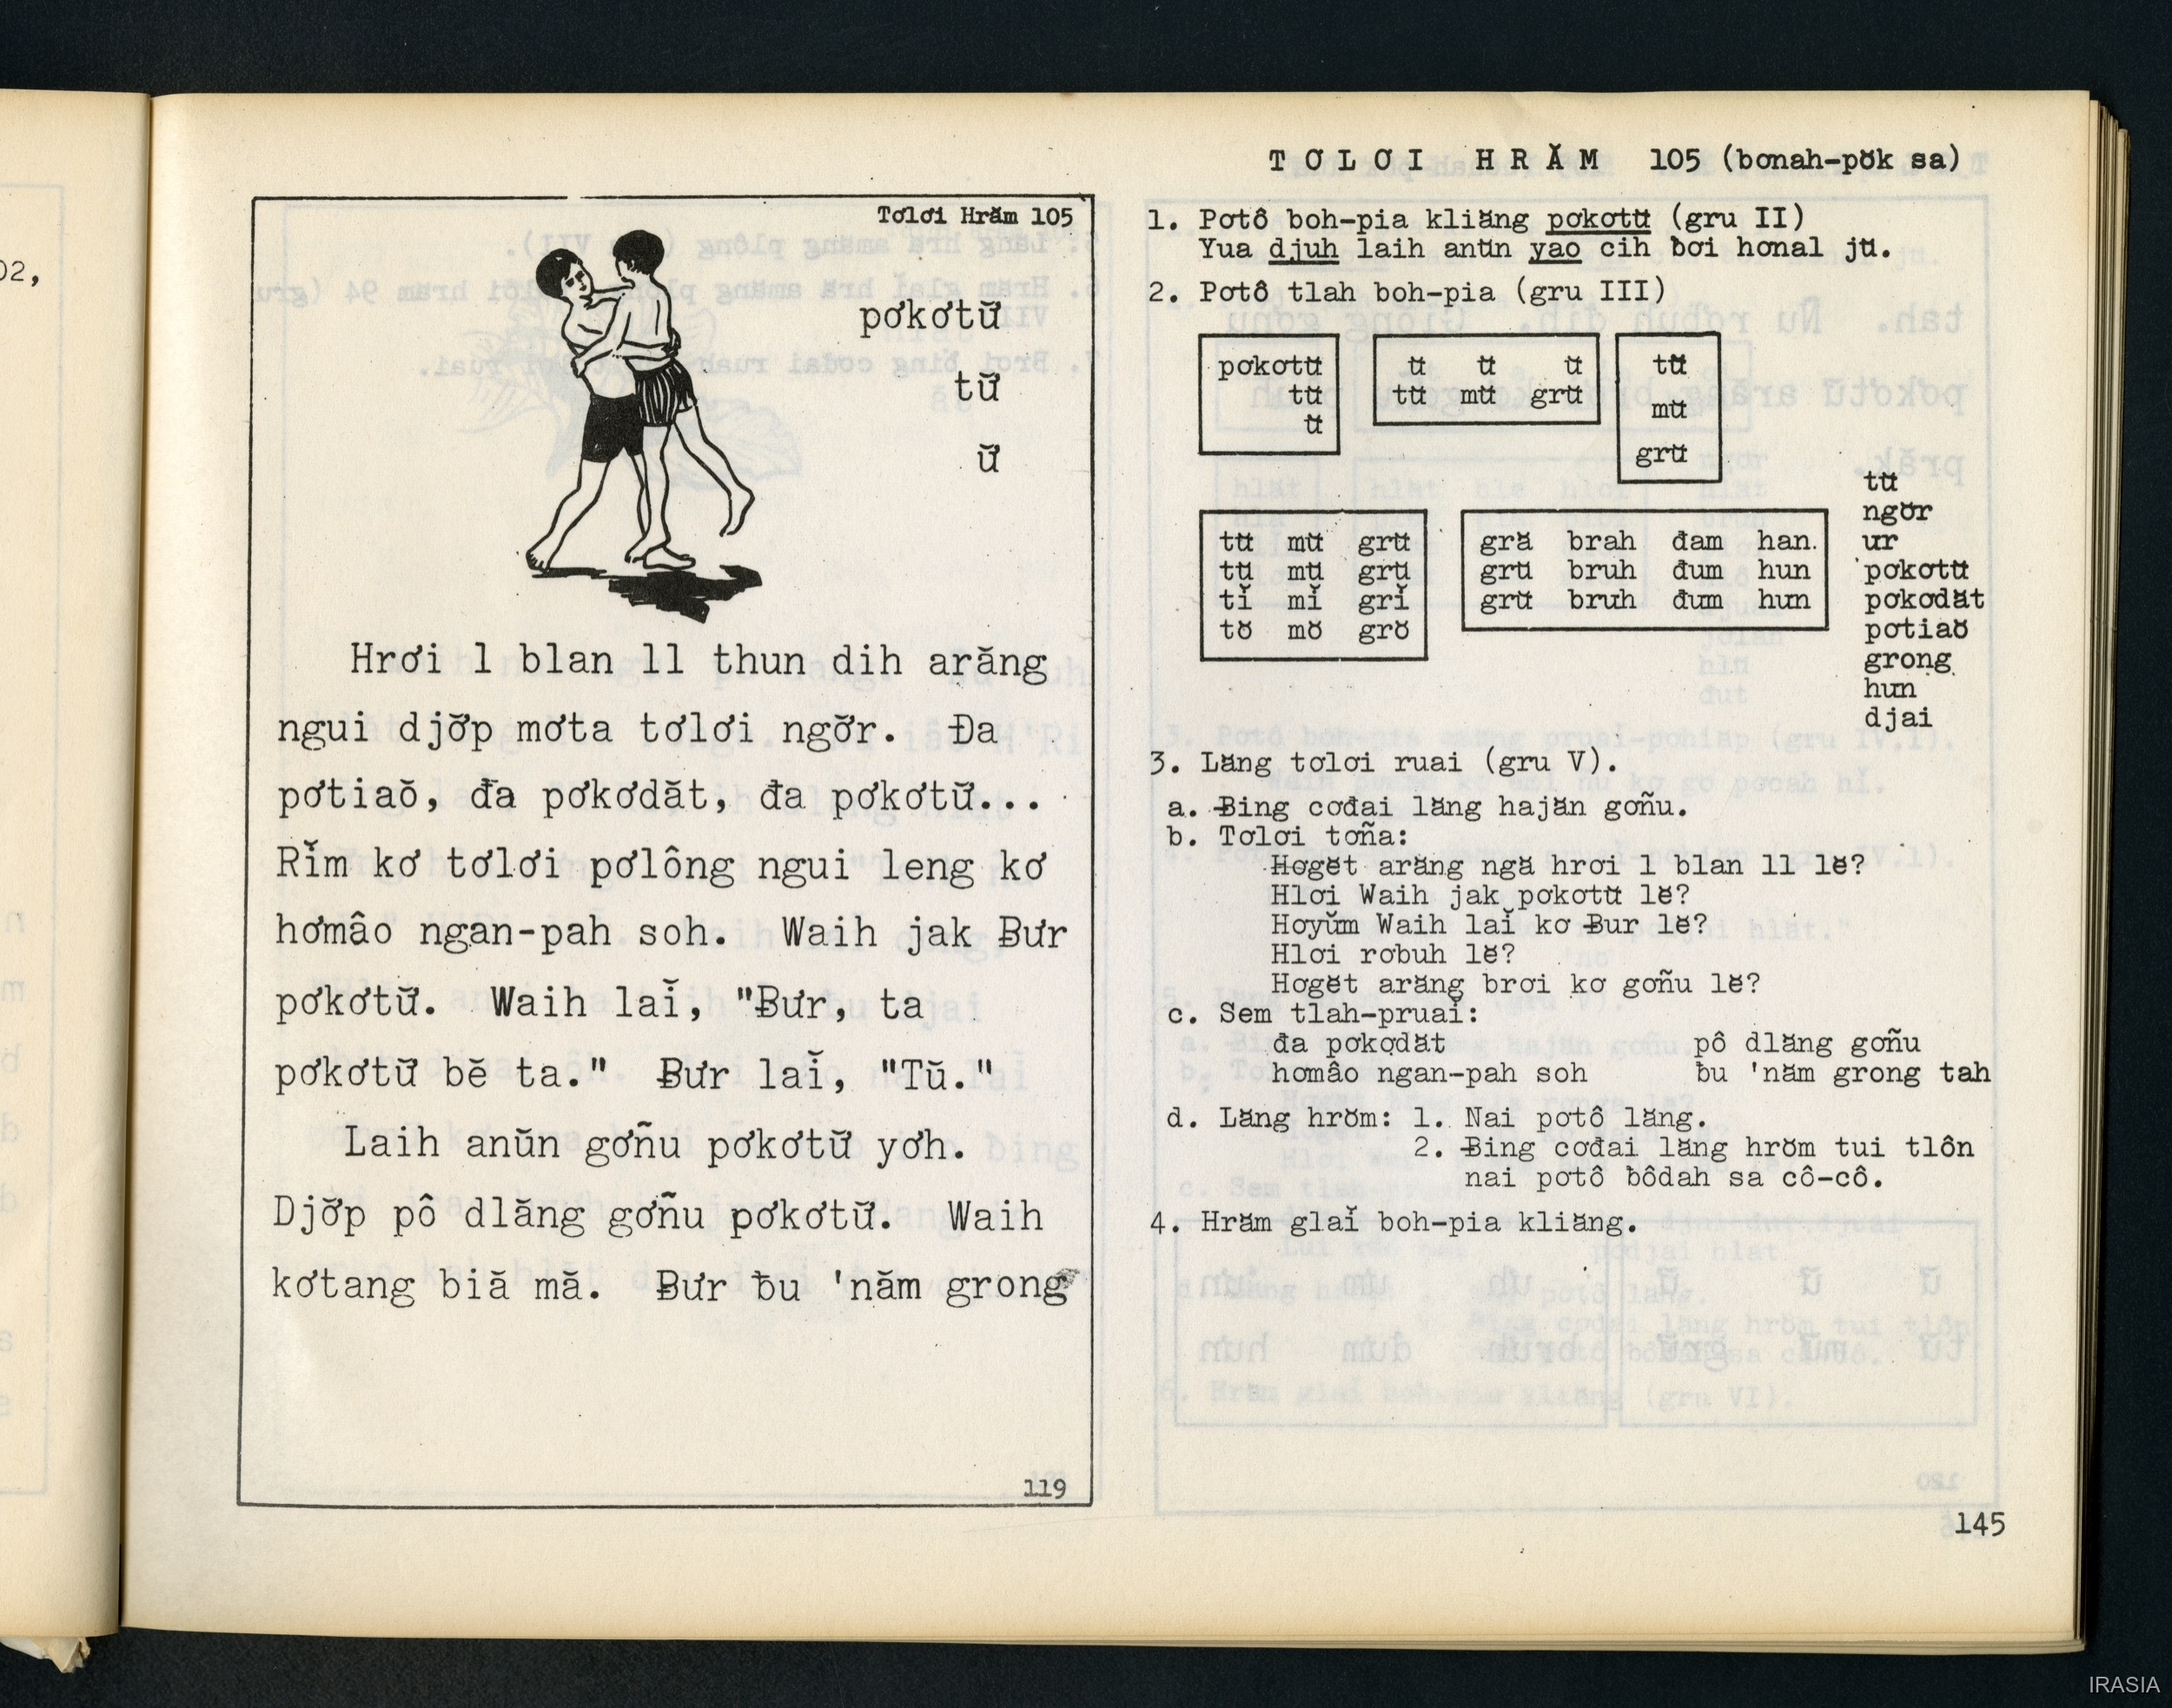 02,
Tơlơi Hrăm 105
pơkơtư̆
tư̆
ư̆
Hrơi 1 blan 11 thun dih arăng
ngui djơ̆p mơta tơlơi ngơ̆r. Đa
pơtiaŏ, đa pơkơdăt, đa pơkơtư̆...
Rĭm kơ tơlơi pơlông ngui leng kơ
hơmâo ngan-pah soh. Waih jak Ƀưr
pơkơtư̆. Waih laĭ, "Ƀưr, ta
pơkơtư̆ bĕ ta." Ƀưr laĭ, "Tŭ."
Laih anŭn gơñu pơkơtư̆ yơh.
Djơ̆p pô dlăng gơñu pơkơtư̆. Waih
kơtang biă mă. Ƀưr ƀu 'năm grong
119
TƠLƠI HRĂM 105 (bơnah-pŏk sa)
1. Pơtô boh-pia kliăng pơkơtư̆ (gru II)
Yua djuh laih anŭn yao cih ƀơi hơnal jŭ.
2. Pơtô tlah boh-pia (gru III)
pơkơtư̆
tư̆
ư̆
ư̆ ư̆ ư̆
tư̆ mư̆ grư̆
tư̆
mư̆
grư̆
tư̆ mư̆ grư̆
tŭ mŭ grŭ
tĭ mĭ grĭ
tŏ mŏ grŏ
gră brah đam han
grŭ bruh đum hun
grư̆ brưh đưm hưn
tư̆
ngơ̆r
ưr
pơkơtư̆
pơkơdăt
pơtiaŏ
grong
hưn
djai
3. Lăng tơlơi ruai (gru V).
a. Ƀing cơđai lăng hajăn gơñu.
b. Tơlơi tơña:
Hơgĕt arăng ngă hrơi 1 blan 11 lĕ?
Hlơi Waih jak pơkơtư̆ lĕ?
Hơyŭm Waih laĭ kơ Ƀưr lĕ?
Hlơi rơbuh lĕ?
Hơgĕt arăng brơi kơ gơñu lĕ?
c. Sem tlah-pruai:
đa pơkơdăt pô dlăng gơñu
hơmâo ngan-pah soh ƀu 'năm grong tah
d. Lăng hrŏm: 1. Nai pơtô lăng.
2. Ƀing cơđai lăng hrŏm tui tlôn
nai pơtô ƀôdah sa cô-cô.
4. Hrăm glaĭ boh-pia kliăng.
145
IRASIA